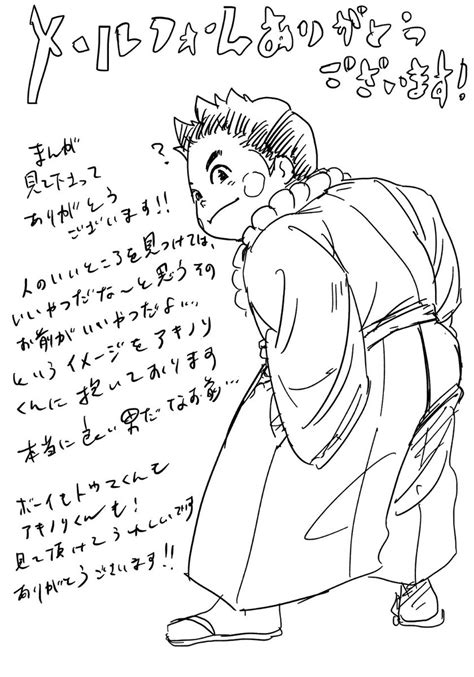 メールフォームありがとう
ございます!
?
まんが
見て下さって
ありがとう
ございます!!
人のいいところを見つけては、
いいやつだな〜と思うその
お前がいいやつだよ…、
というイメージをアキノリ
くんに抱いております
本当に良い男だなお前…
ボーイもトウマくんも
アキノリくんも!
見て頂けてうれしいです
ありがとうございます!!